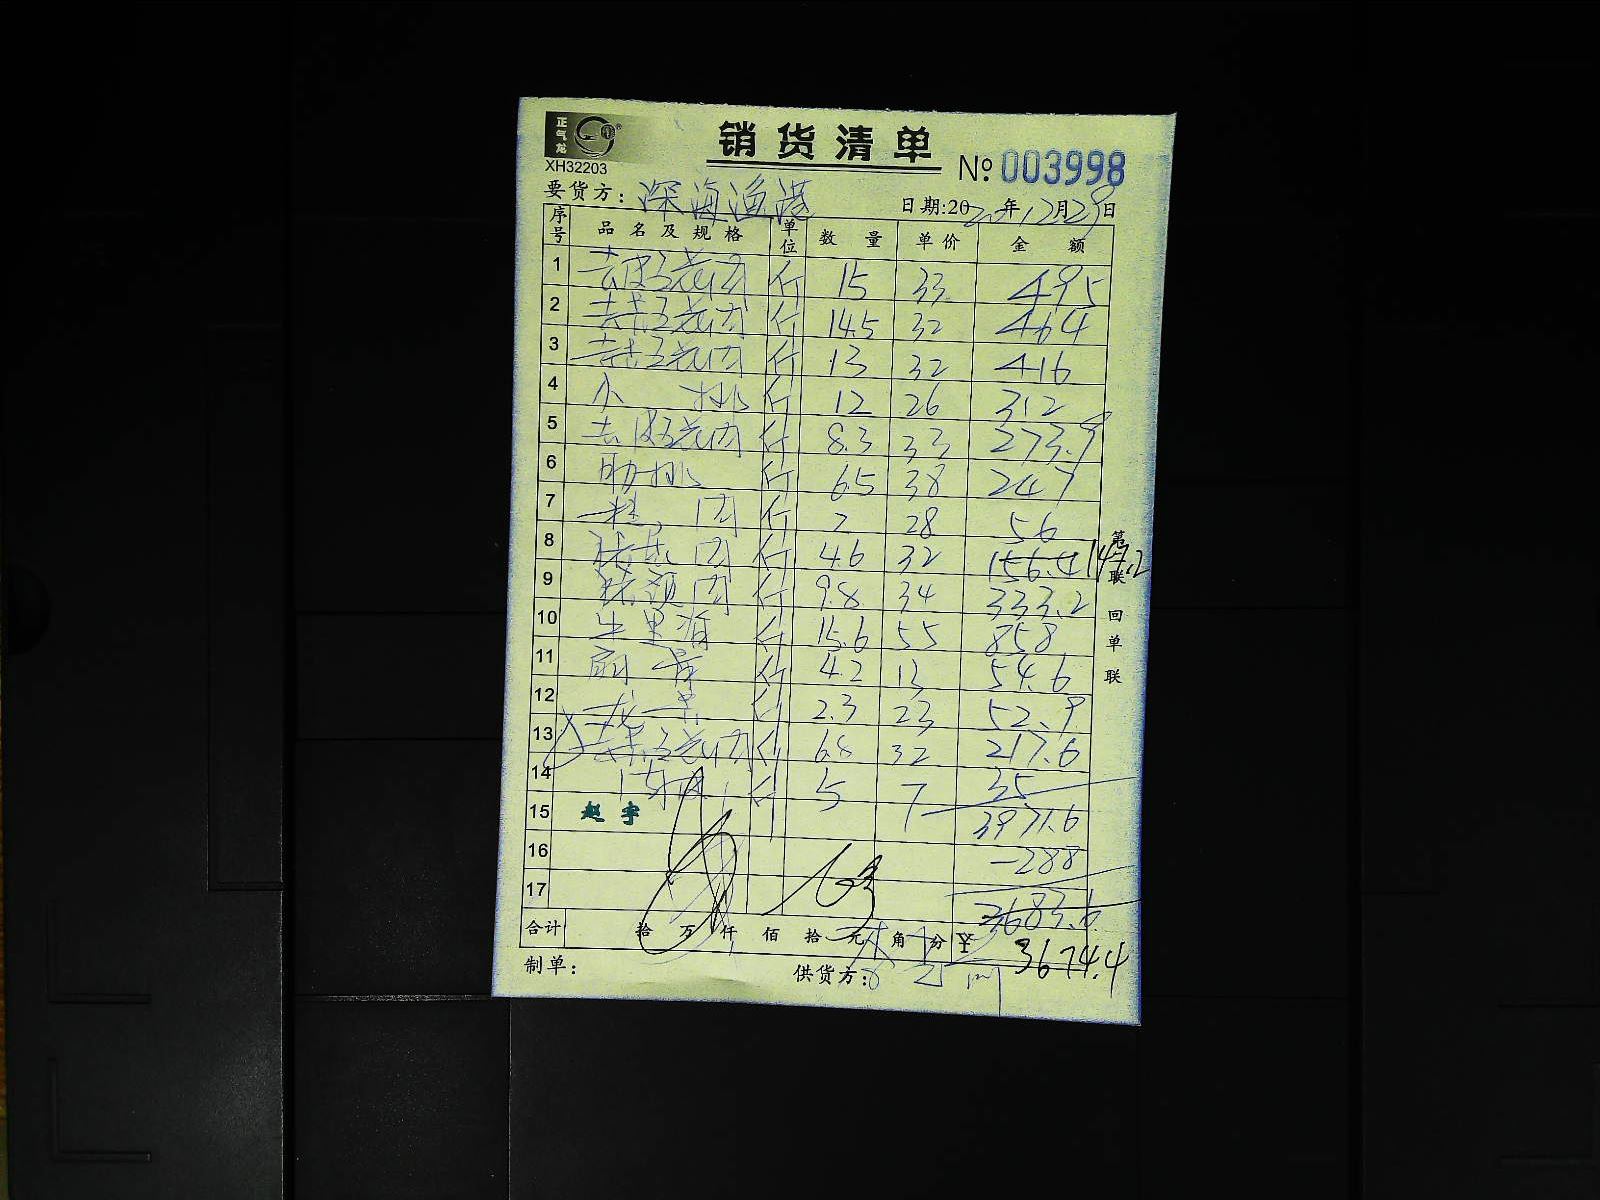 正气龙
XH32203
销货清单
№ 003998
要货方: 深海渔港
日期:2020年12月29日
序号 品名及规格 单位 数量 单价 金额
1 去皮五花肉 斤 15 33 495
2 五花肉 斤 14.5 32 464
3 五花肉 斤 13 32 416
4 小排 斤 12 26 312
5 去皮五花肉 斤 8.3 33 273.9
6 肋排 斤 6.5 38 247
7 肉 斤 2 28 56
8 肉 斤 4.6 32 156.4 147.2
9 猪颈肉 斤 9.8 34 333.2
10 牛里脊 斤 15.6 55 858
11 扇骨 斤 4.2 13 54.6
12 龙骨 斤 2.3 23 52.9
13 五花肉 斤 6.8 32 217.6
14 斤 5 7 35
15 赵宇 3971.6
16 -288
17 3683.6
合计 拾 万 仟 佰 拾 元 角 分 ¥ 3674.4
制单:
供货方:
第一联 回单联